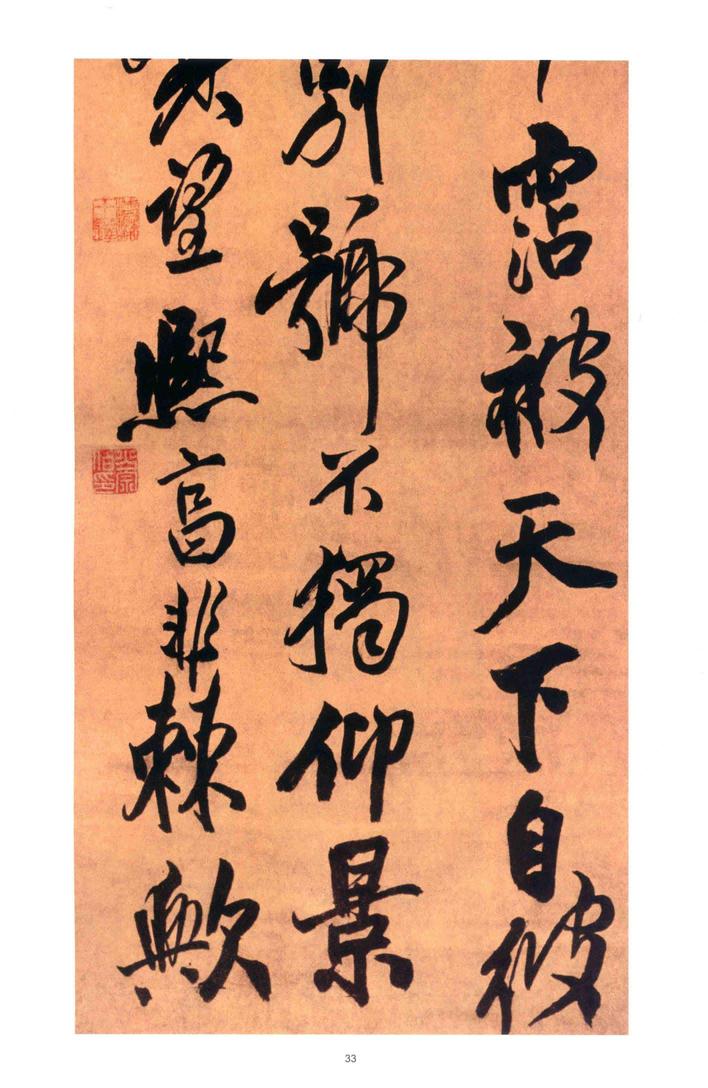 霑被天下自彼
別號不獨仰景
望熙高非棘歟
33